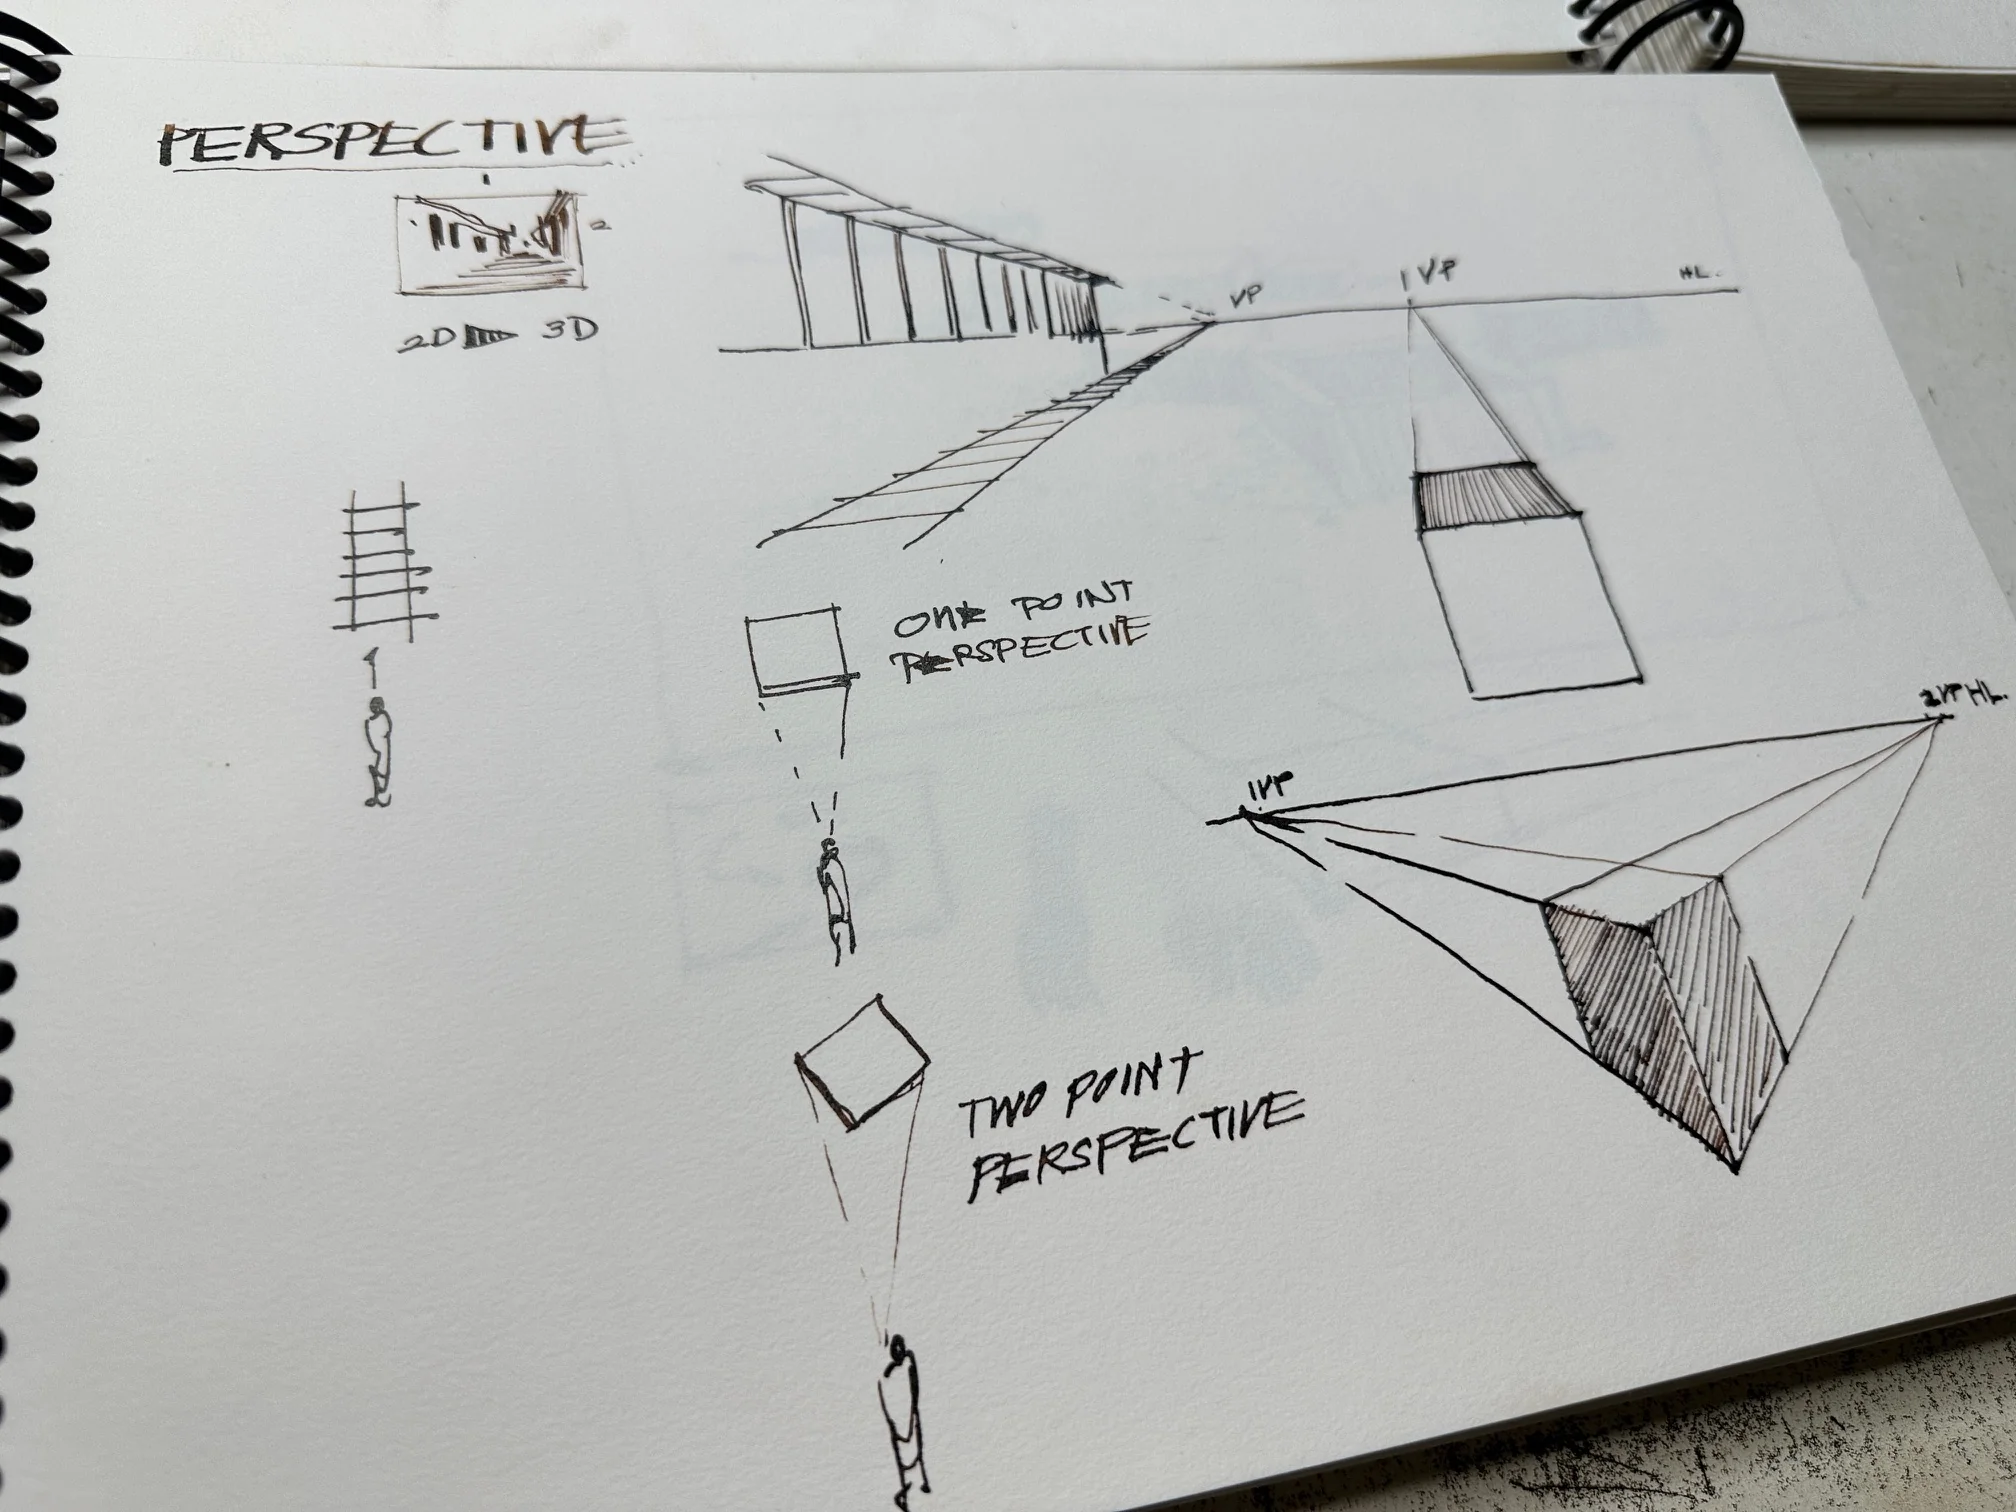 PERSPECTIVE
2D 3D
VP
1 VP
HL.
ONE POINT
PERSPECTIVE
1VP
2VP HL.
TWO POINT
PERSPECTIVE